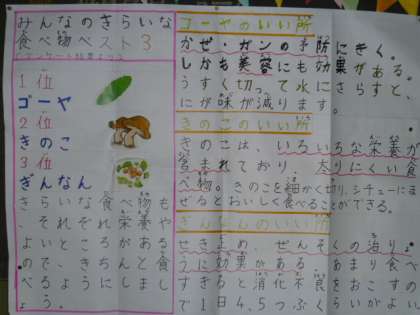 みんなのきらいな
食べ物ベスト3
1位
ゴーヤ
2位
きのこ
3位
ぎんなん
きらいな食べ物も
、それぞれ栄養や
よいところがある
ので、きちんと食
べるようにしまし
ょう。
ゴーヤのいい所
かぜ・ガンの予防にきく。
しかも美容にも効果がある。
うすく切って水にさらすと、
にが味が減ります。
きのこのいい所
きのこは、いろいろな栄養が
含まれており、太りにくい食
べ物。きのこを細かく切り、シチューにま
ぜるとおいしく食べることができる。
ぎんなんのいい所
せき止め、ぜんそくの治りょ
うに効果がある。あまり食べ
すぎると消化不良をおこすの
で1日4、5つぶくらいがよい。